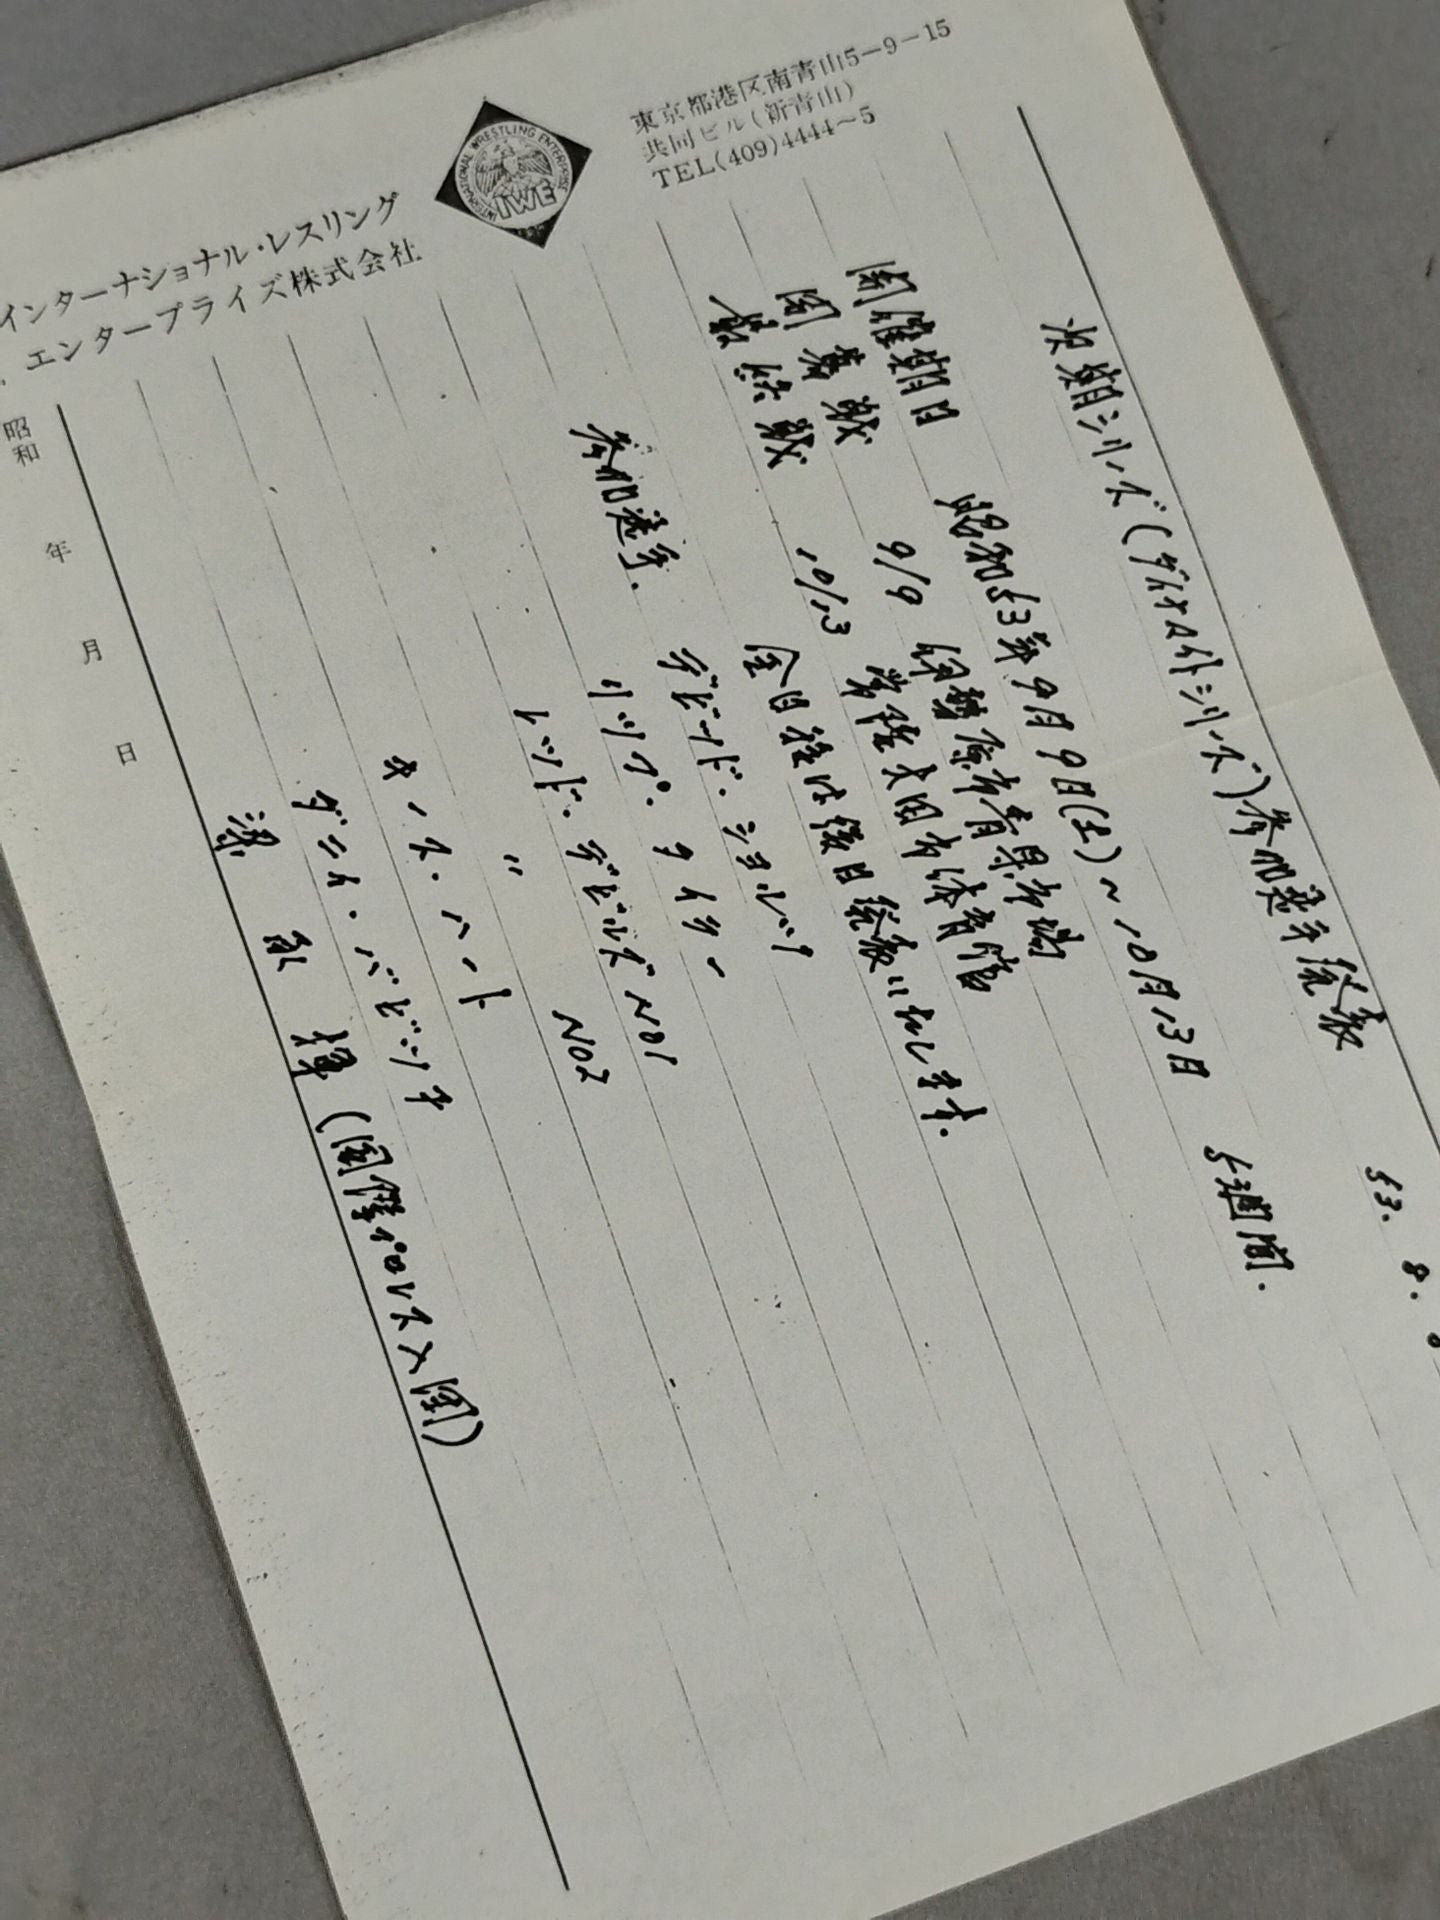 53. 8.
次期シリーズ(ダイヤスト シリーズ)参加選手発表
開催期日 昭和53年9月9日(土)〜10月13日 5週間.
開幕戦 9/9 伊勢原市青果市場
最終戦 10/13 常陸太田市体育館
全日程は後日発表いたします.
参加選手. デビード・ショルツ
リップ・タイラー
レッド・デビルズ NO1
〃 NO2
キース・ハート
ダニィ・バビッチ
梁 承揮(国際プロレス入団)
昭和 年 月 日
インターナショナル・レスリング
エンタープライズ株式会社
INTERNATIONAL WRESTLING ENTERPRISE
IWE
東京都港区南青山5-9-15
共同ビル(新青山)
TEL(409)4444〜5